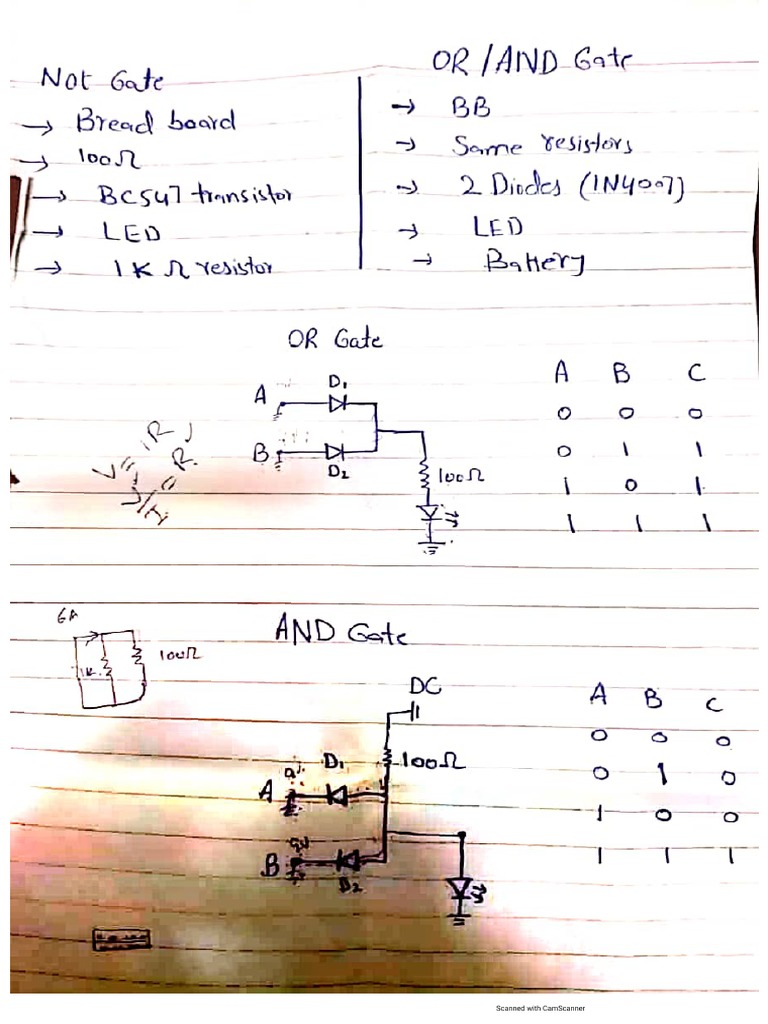 Not Gate
→ Bread board
→ 100Ω
→ BC547 transistor
→ LED
→ 1K Ω resistor
OR/AND Gate
→ BB
→ Same resistors
→ 2 Diodes (1N4007)
→ LED
→ Battery
OR Gate
A
D1
B
D2
100Ω
A B C
0 0 0
0 1 1
1 0 1
1 1 1
6A
1K
100Ω
AND Gate
DC
100Ω
D1
A
B
D2
A B C
0 0 0
0 1 0
1 0 0
1 1 1
Scanned with CamScanner